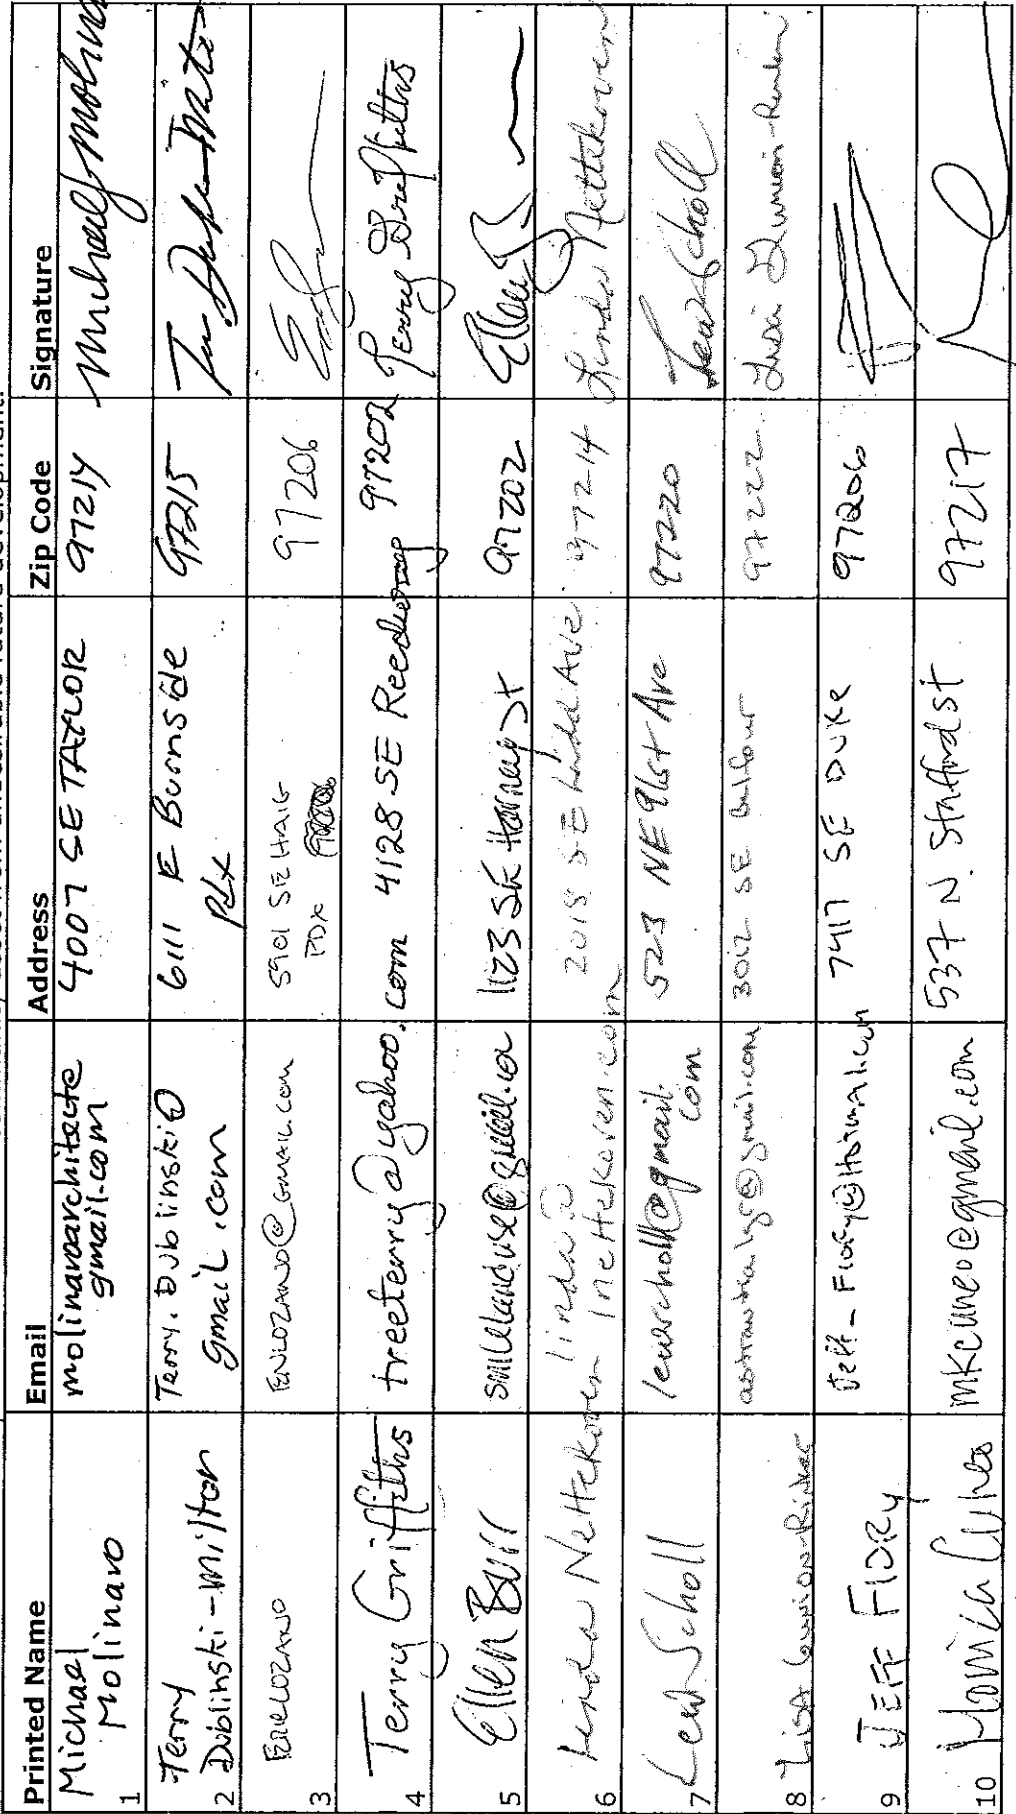 Printed Name Email Address Zip Code Signature
Michael Molinaro molinaroarchitecte 4007 SE TAYLOR 97214 Michael Molinaro
gmail.com
1
Terry Terry.Dublinski@ 6111 E Burnside 97215
2 Dublinski-Milton gmail.com PDX
3 @GMAIL.COM SE HAIG 97206
PDX
4 Terry Griffiths treeterry@yahoo.com 4128 SE Reedway 97202 Terry Griffiths
5 Ellen Burr smilelanduse@gmail.com 1123 SE Harney St 97202 Ellen
6 Linda Nettekoven linda@ 2018 SE Ladd Ave 97214 Linda Nettekoven
lnettekoven.com
7 Lew Scholl lewscholl@gmail. 523 NE 91st Ave 97220 Lew Scholl
com
8 Lisa Gunion-Rinker @gmail.com 3012 SE Balfour 97222 Lisa Gunion-Rinker
9 JEFF FIDRY Jeff_Fidry@Hotmail.com 7417 SE DUKE 97206
10 Monica Cuneo mkcuneo@gmail.com 537 N. Stafford St 97217